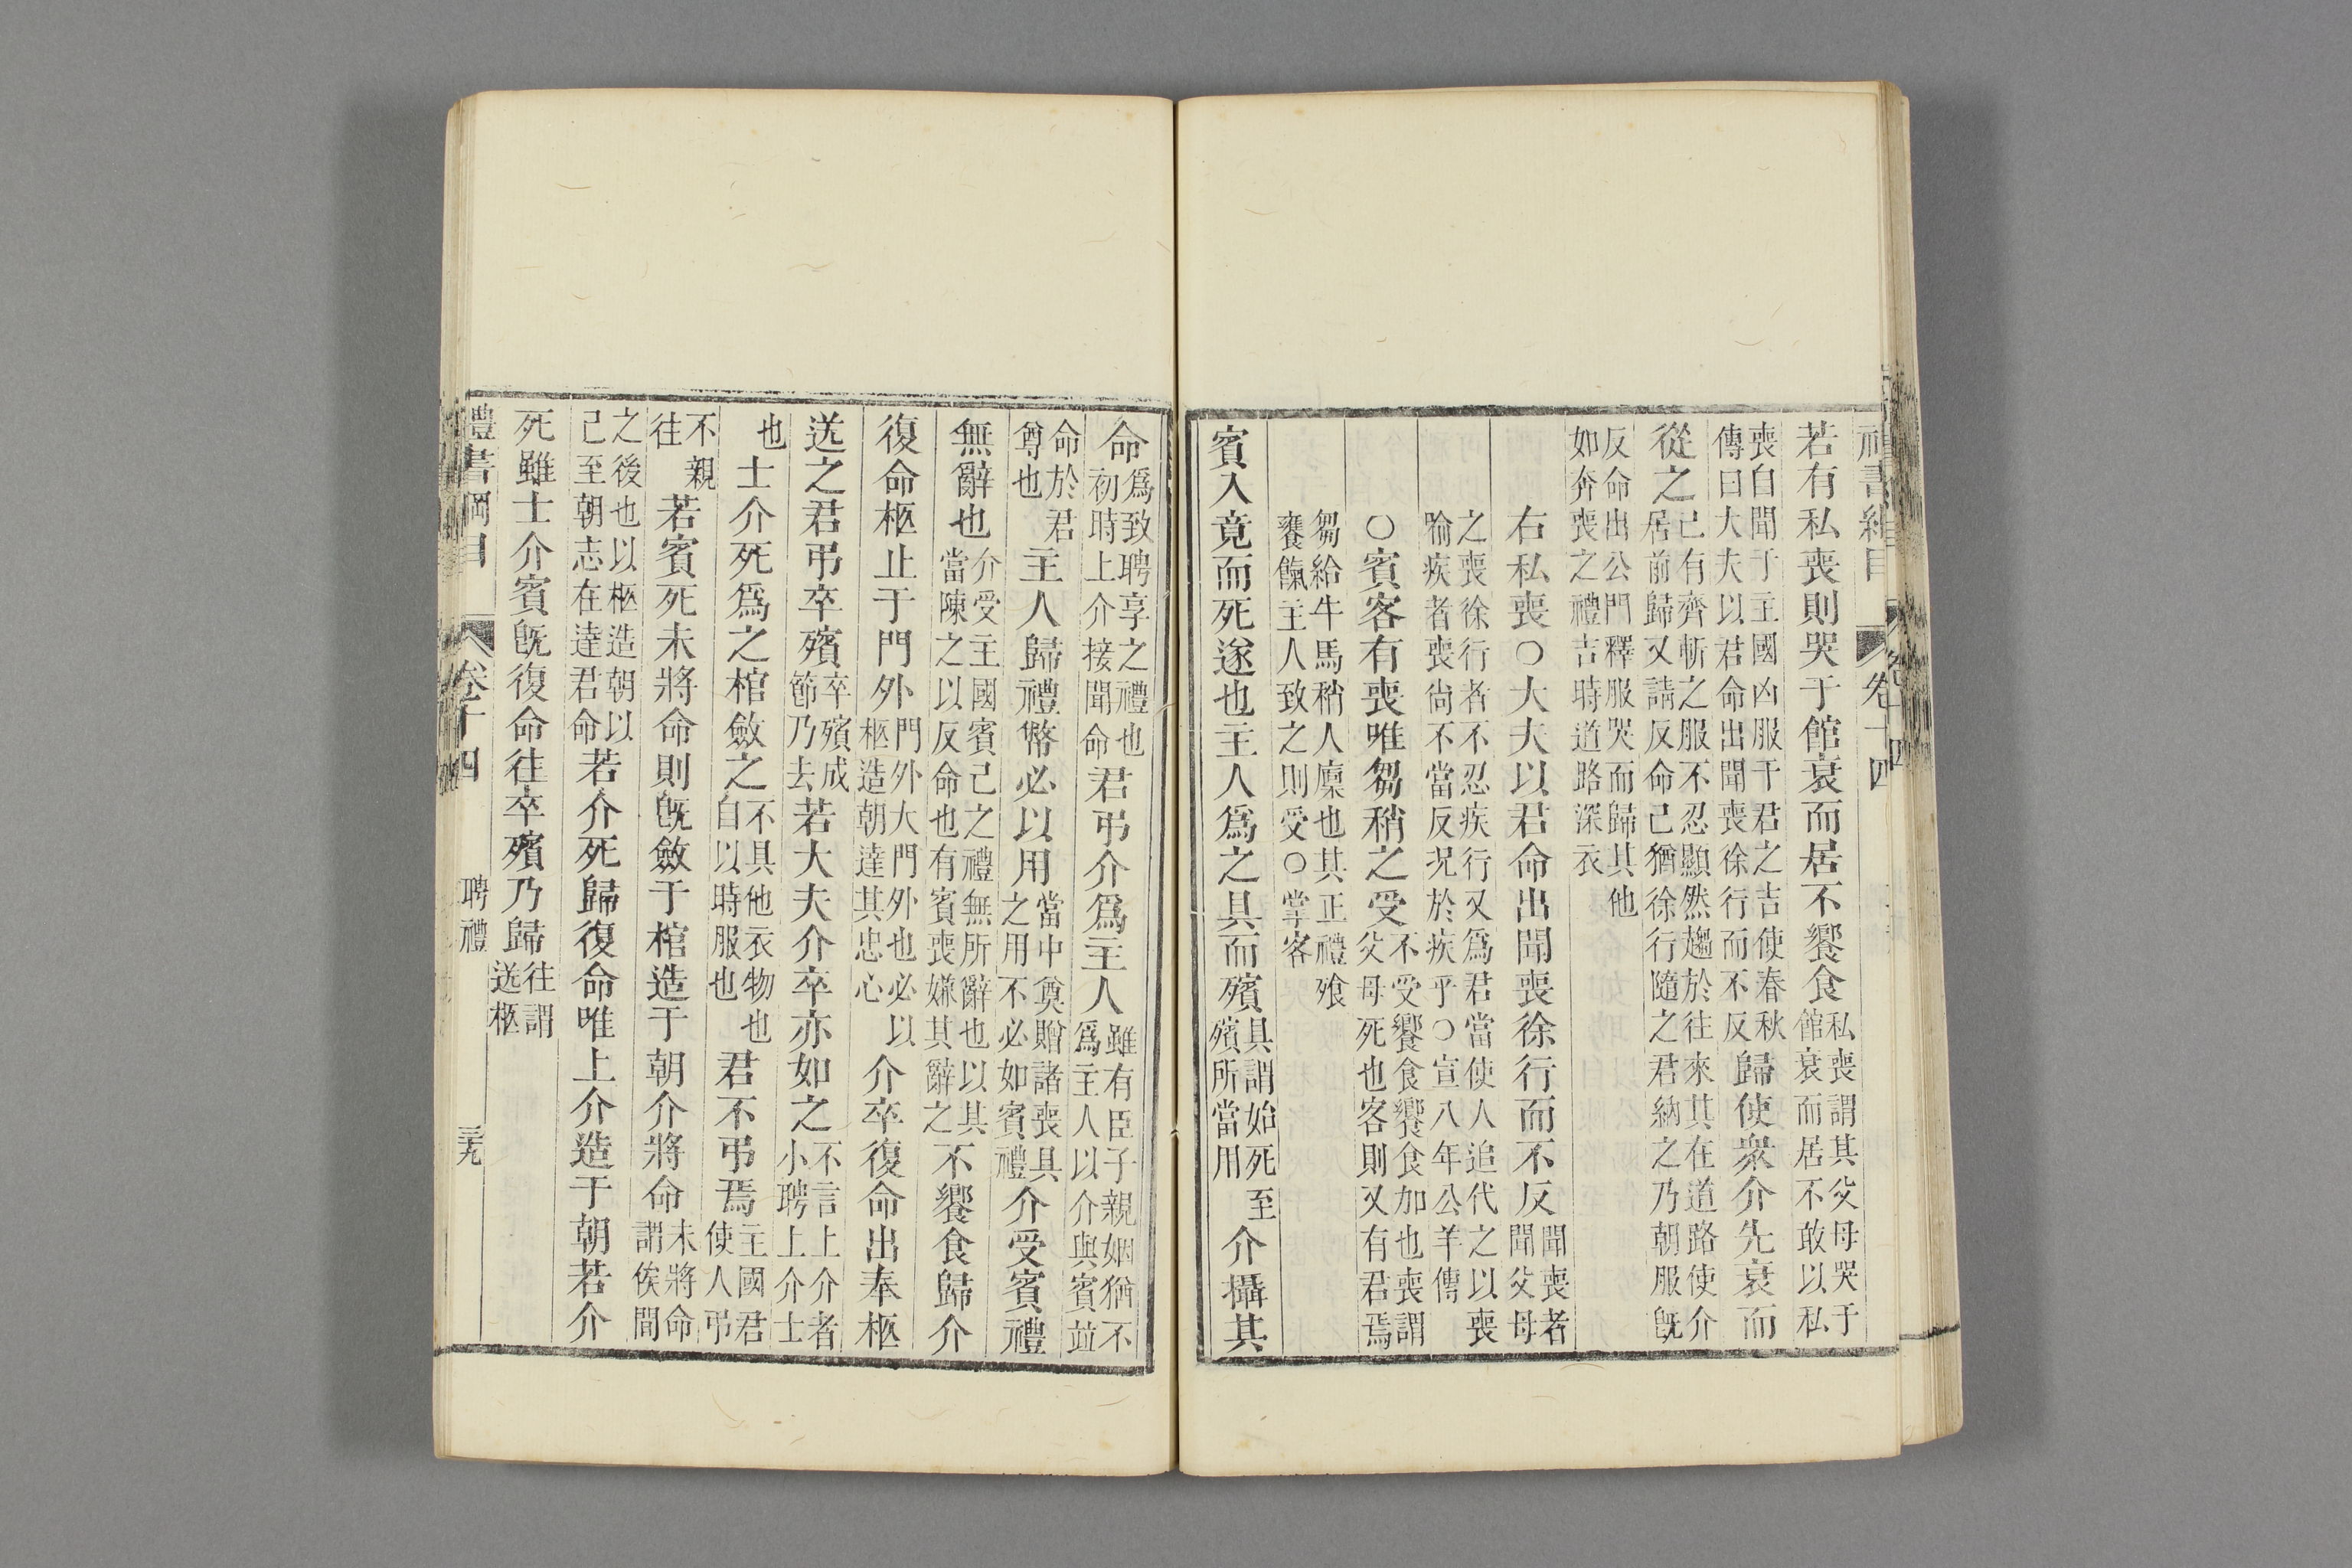 禮書綱目 卷十四
若有私喪則哭于館衰而居不饗食私喪謂其父母哭于館衰而居不敢以私
喪自聞于主國凶服干君之吉使春秋傳曰大夫以君命出聞喪徐行而不反歸使衆介先衰而
從之己有齊斬之服不忍顯然趨於往來其在道路使介居前歸又請反命己猶徐行隨之君納之乃朝服旣
反命出公門釋服哭而歸其他如奔喪之禮吉時道路深衣
右私喪○大夫以君命出聞喪徐行而不反聞喪者聞父母
之喪徐行者不忍疾行又爲君當使人追代之以喪喻疾者喪尙不當反況於疾乎○宣八年公羊傳
○賓客有喪唯芻稍之受不受饗食饗食加也喪謂父母死也客則又有君焉
芻給牛馬稍人廩也其正禮飧饔餼主人致之則受○掌客
賓入竟而死遂也主人爲之具而殯具謂始死至殯所當用介攝其
命爲致聘享之禮也初時上介接聞命君弔介爲主人雖有臣子親姻猶不爲主人以介與賓並
命於君尊也主人歸禮幣必以用當中奠贈諸喪具之用不必如賓禮介受賓禮
無辭也介受主國賓己之禮無所辭也以其當陳之以反命也有賓喪嫌其辭之不饗食歸介
復命柩止于門外門外大門外也必以柩造朝達其忠心介卒復命出奉柩
送之君弔卒殯卒殯成節乃去若大夫介卒亦如之不言上介者小聘上介士
也士介死爲之棺斂之不具他衣物也自以時服也君不弔焉主國君使人弔
不親往若賓死未將命則旣斂于棺造于朝介將命未將命謂俟間
之後也以柩造朝以己至朝志在達君命若介死歸復命唯上介造于朝若介
死雖士介賓旣復命往卒殯乃歸往謂送柩
禮書綱目 卷十四 聘禮 三九